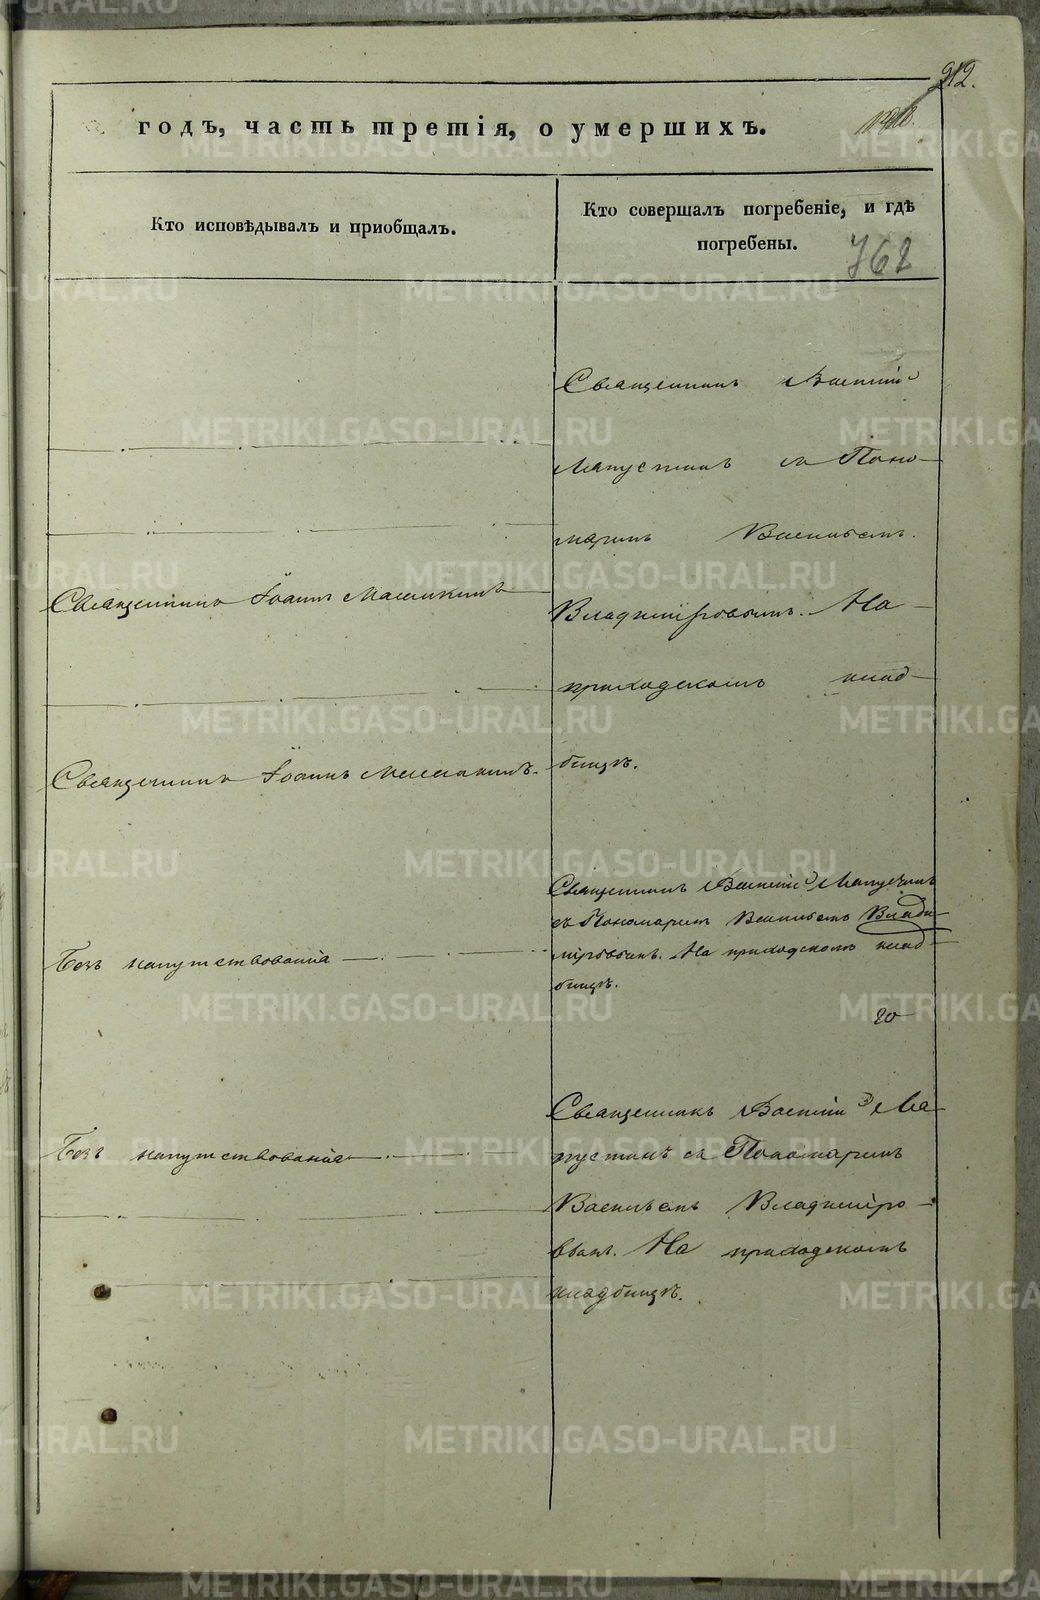 212.
годъ, часть третія, о умершихъ.
Кто исповѣдывалъ и приобщалъ.
Кто совершалъ погребеніе, и гдѣ
погребены.
762
Священникъ Василій
Лапустинъ съ Поно-
маремъ Васильемъ
Владиміровымъ. На
приходскомъ клад-
бищѣ.
Священникъ Іоаннъ
Священникъ Іоаннъ
Священникъ Василій Лапустинъ
съ Пономаремъ Васильемъ Влади-
міровымъ. На приходскомъ клад-
бищѣ.
Безъ напутствованія
20
Священникъ Василій Ла-
пустинъ съ Пономаремъ
Васильемъ Владиміро-
вымъ. На приходскомъ
кладбищѣ.
Безъ напутствованія
METRIKI.GASO-URAL.RU